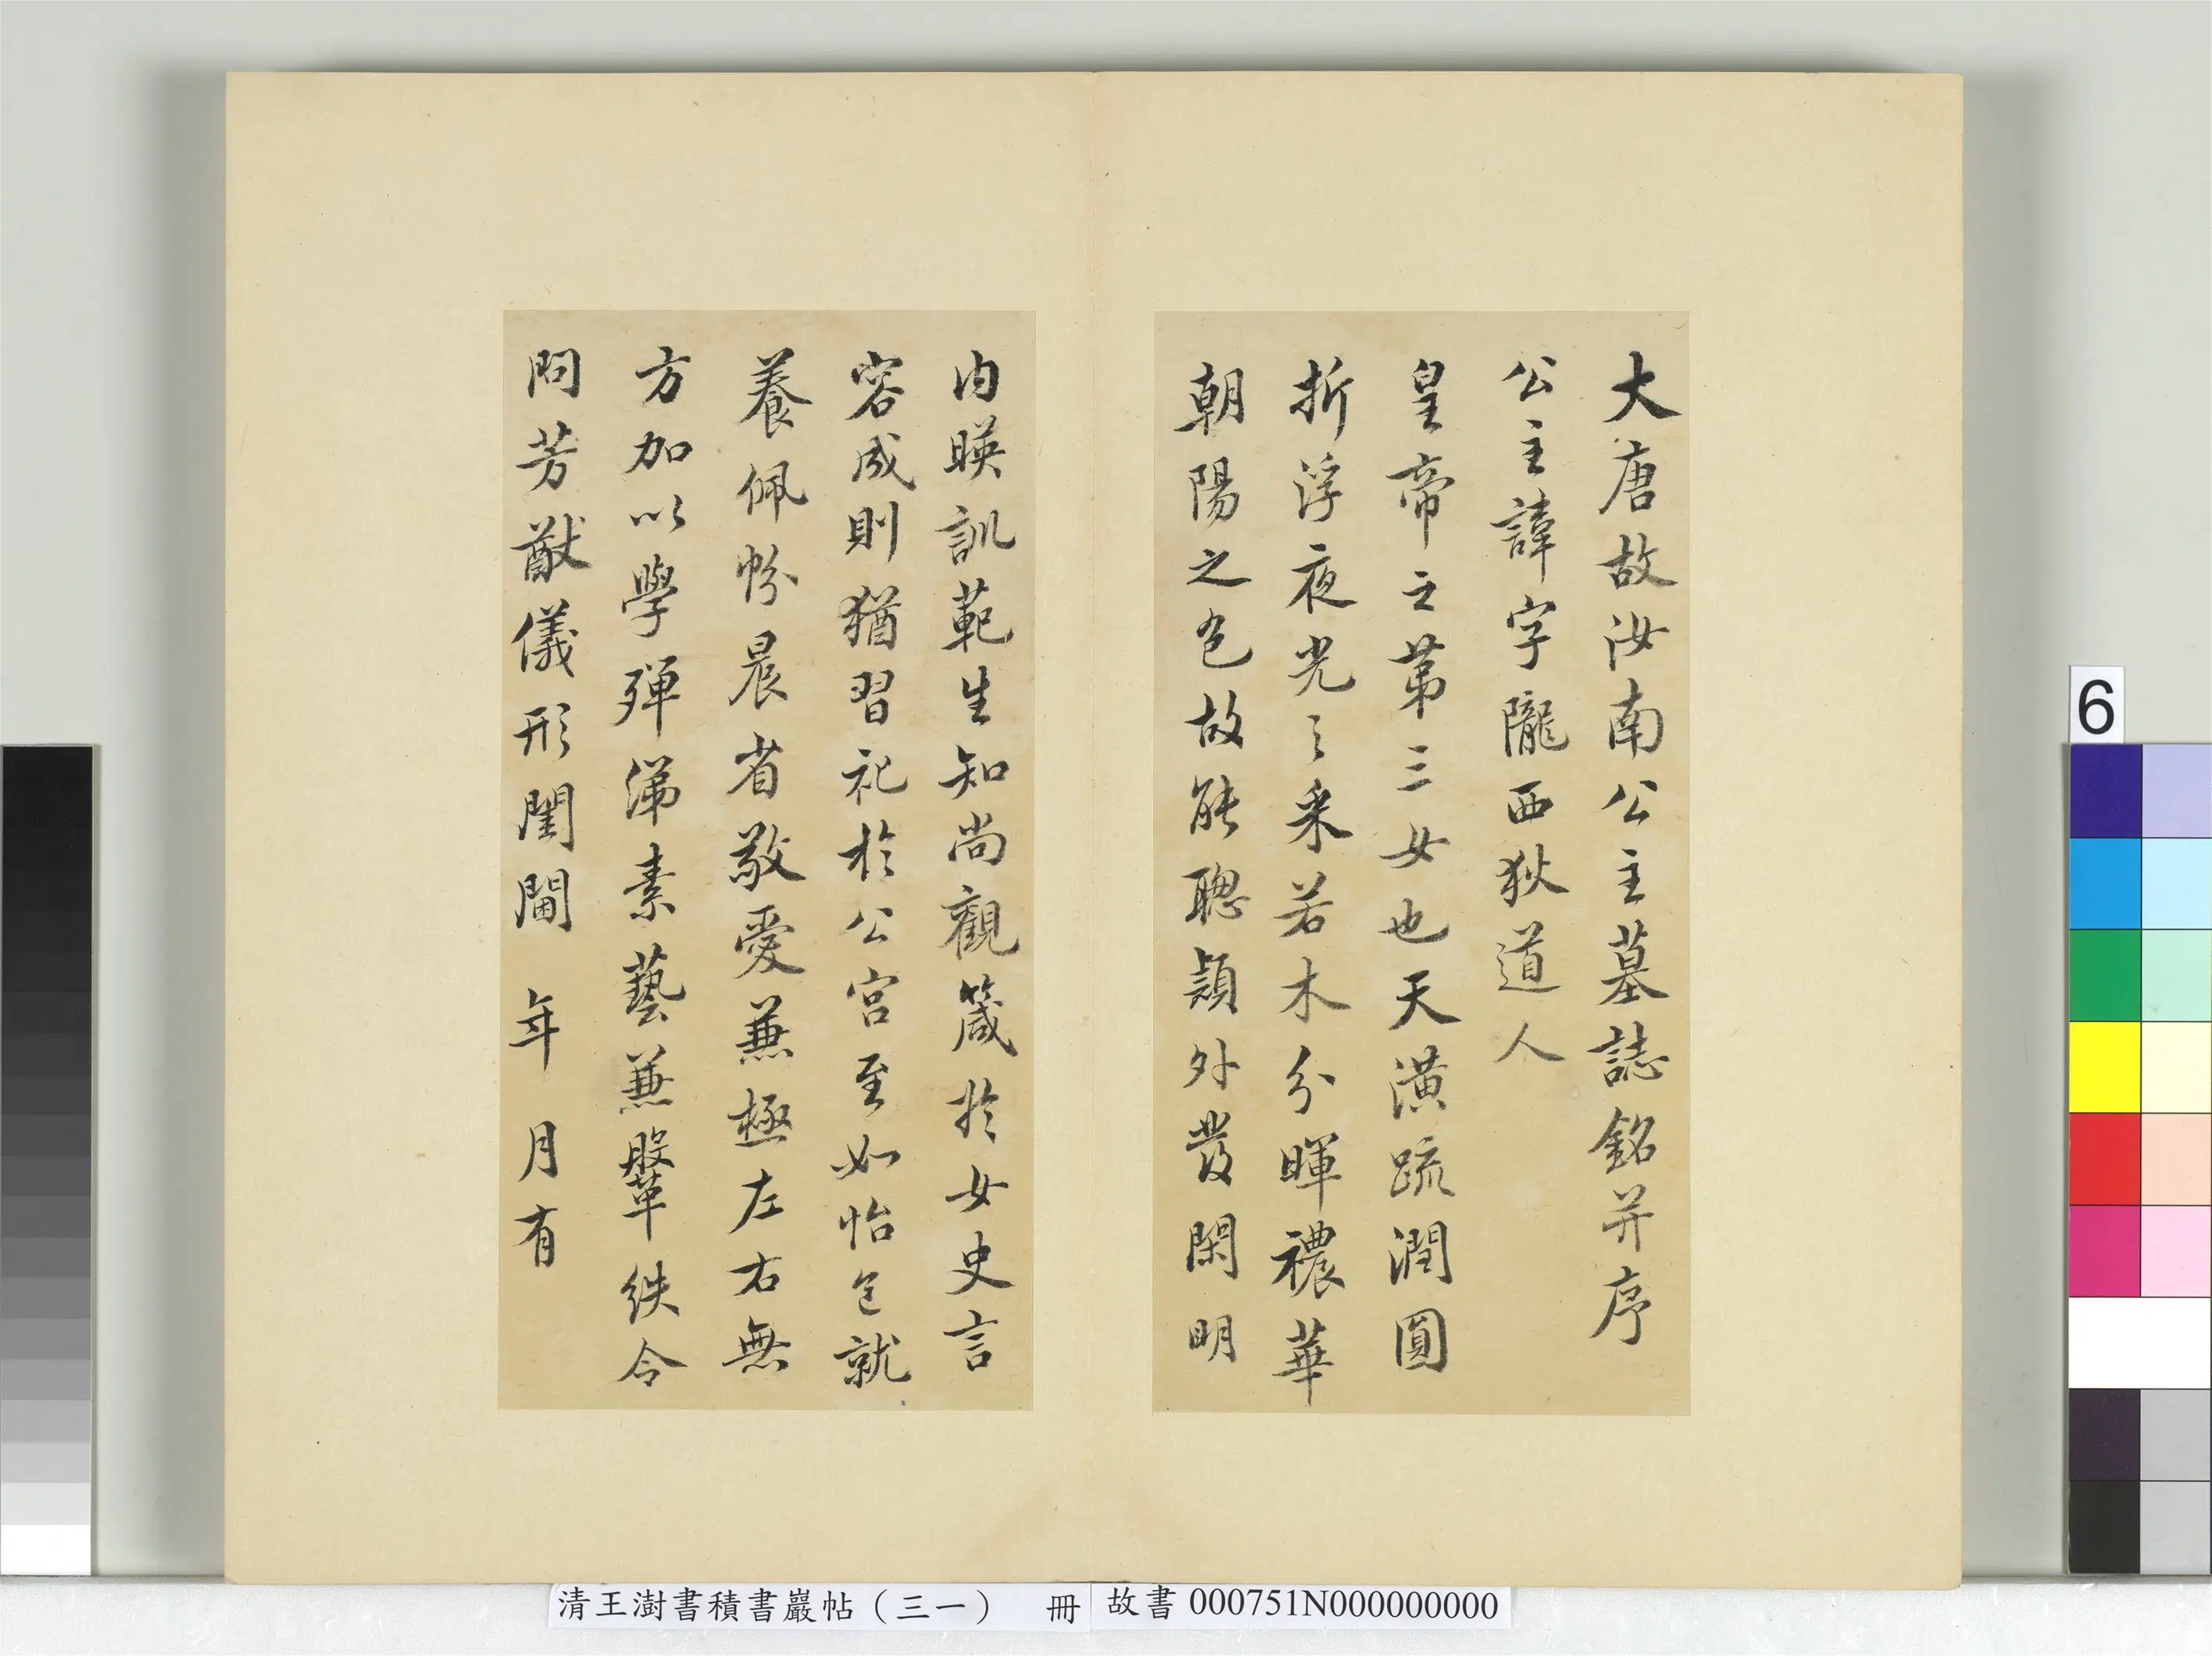 大唐故汝南公主墓誌銘并序
公主諱字隴西狄道人
皇帝之第三女也天潢疏潤圓
折浮夜光之采若木分暉禯華
朝陽之色故能聰穎外發閑明
內暎訓範生知尚觀箴於女史言
容成則猶習祀於公宮至如怡色就
養佩帉晨省敬愛兼極左右無
方加以學殫綈素藝兼鞶紩令
問芳猷儀形閨閫 年 月有
6
清王澍書積書巖帖（三一） 冊
故書 000751N000000000